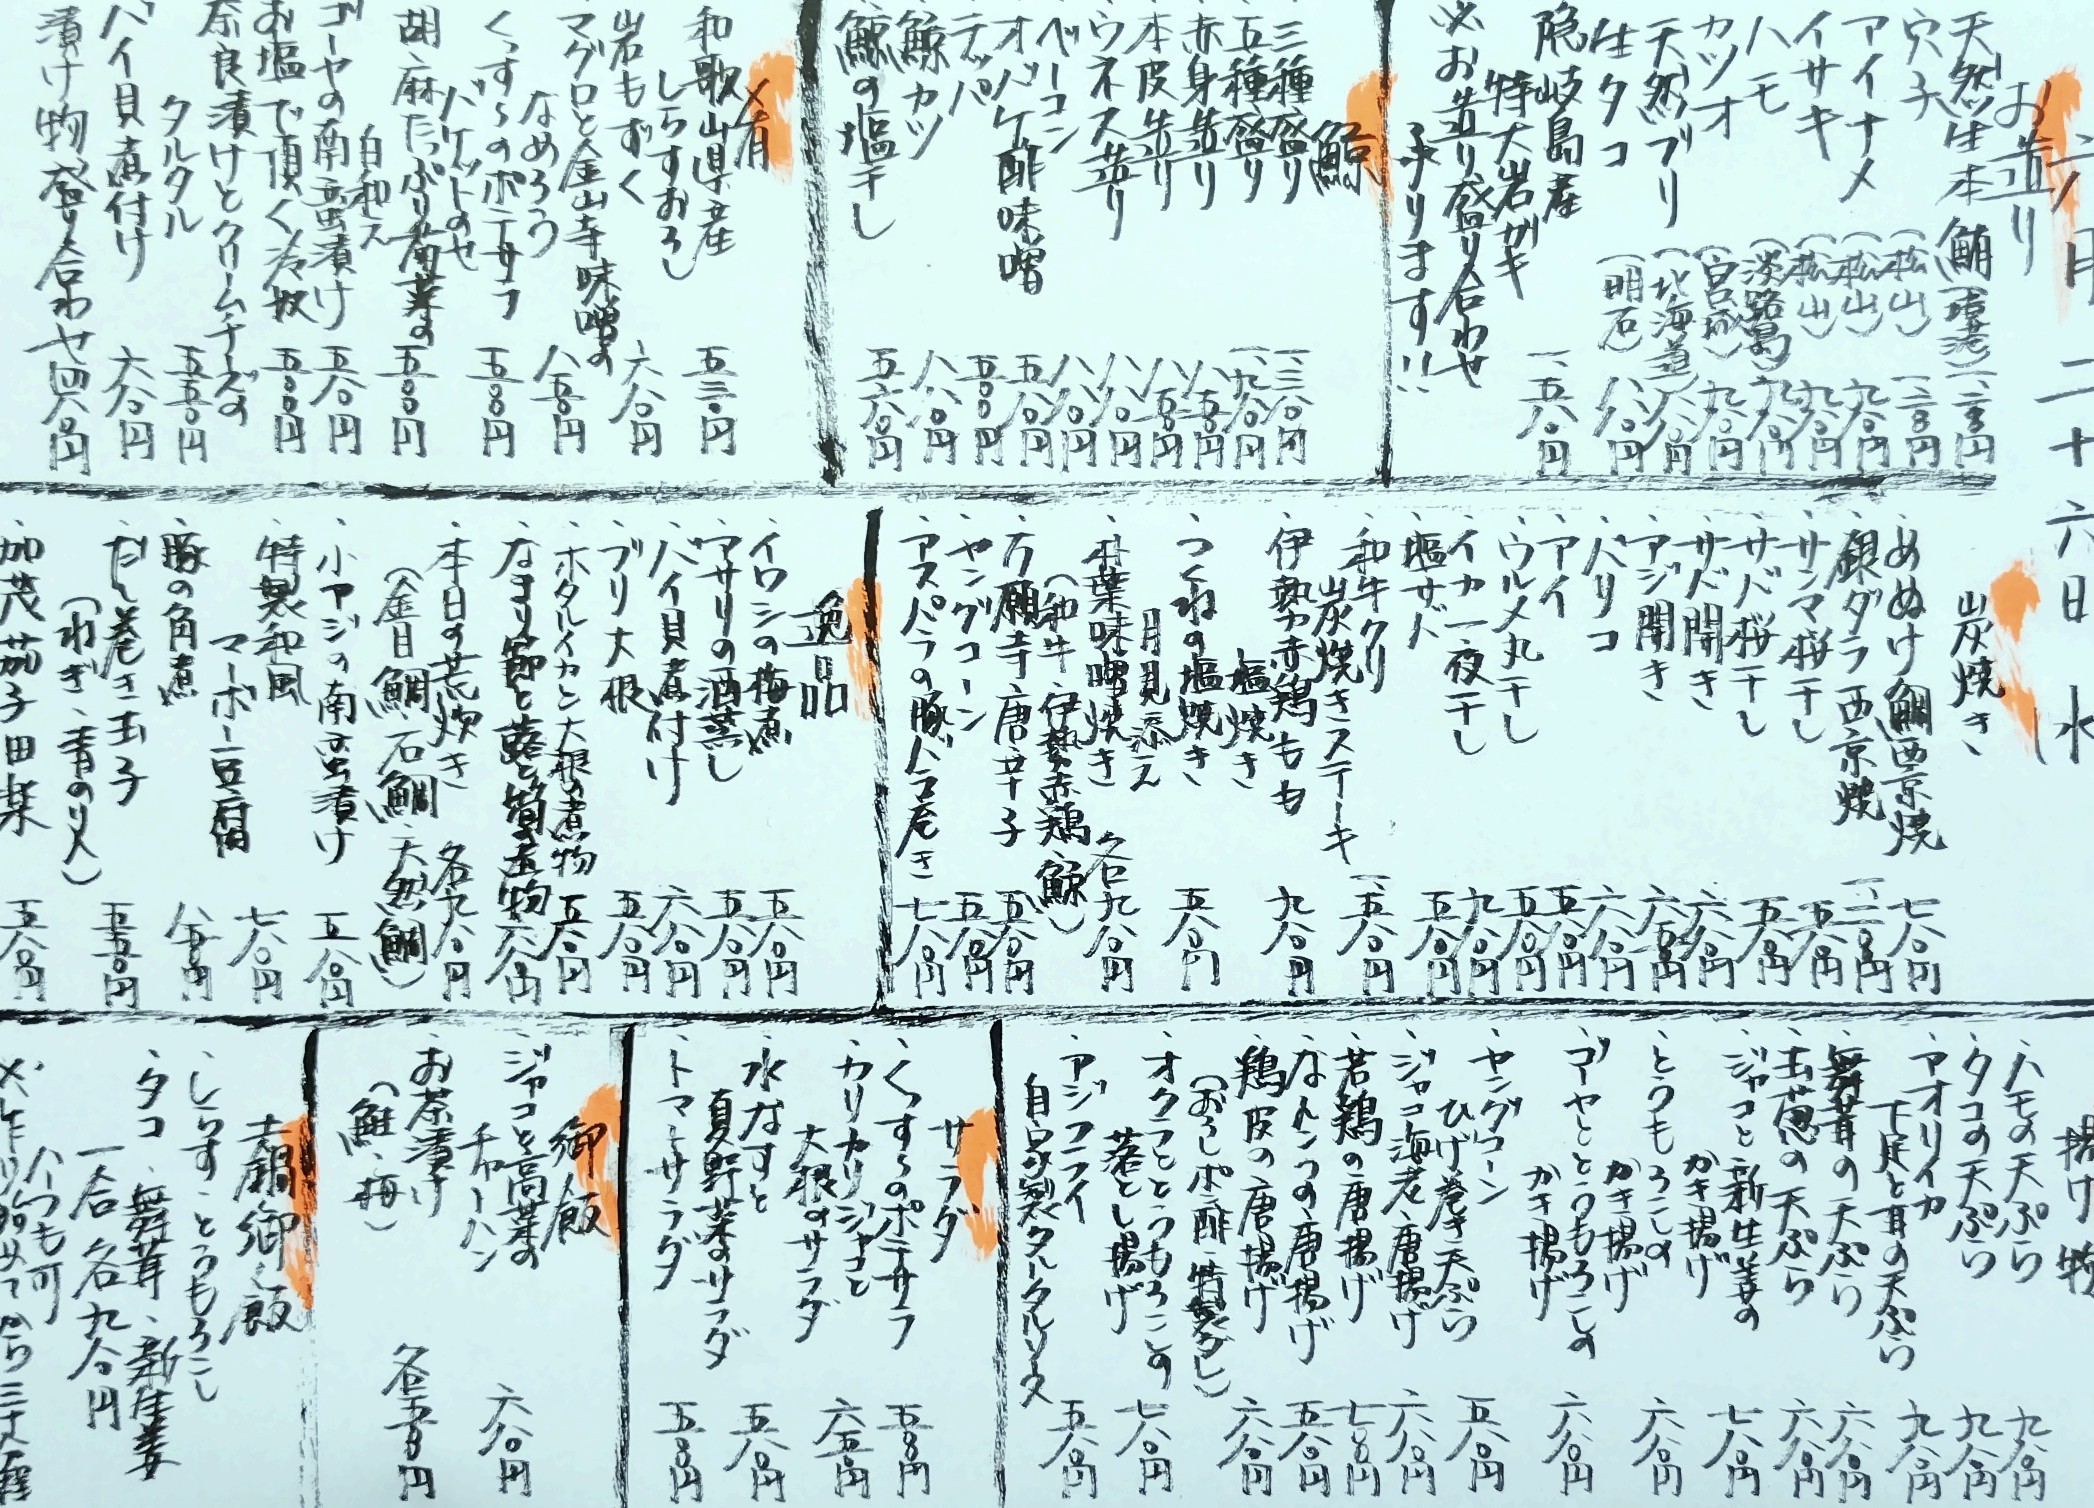 六月二十六日(水)
お造り
天然生本鮪(境港)
穴子(松山)
アイナメ(松山)九八〇円
イサキ(松山)九八〇円
ハモ(淡路島)九八〇円
カツオ(宮城)九八〇円
天然ブリ(北海道)八八〇円
生タコ(明石)八八〇円
隠岐島産
特大岩ガキ 一、五八〇円
※お造り盛り合わせ
承ります!!
鯨
三種盛り 一、三八〇円
五種盛り 一、九八〇円
赤身造り 八五〇円
本皮造り 八五〇円
ウネス造り 八八〇円
ベーコン 八八〇円
オバケ酢味噌 五八〇円
テッパ 五〇〇円
鯨カツ 八八〇円
鯨の塩干し 五八〇円
肴
和歌山県産
しらすおろし 五三〇円
岩もずく 六八〇円
マグロと金山寺味噌の
なめろう 八五〇円
くずしのポテサラ 五八〇円
バゲットのせ
胡麻たっぷり青菜の
白和え 五〇〇円
ゴーヤの南蛮漬け 五八〇円
お塩で頂く冷奴 五〇〇円
奈良漬けとクリームチーズの
タルタル 五五〇円
バイ貝煮付け 六八〇円
漬け物盛り合わせ 四八〇円
炭焼き
・あぬけ鯛西京焼 七八〇円
・銀ダラ西京焼
・サンマ桜干し 五八〇円
・サバ桜干し 五八〇円
・サバ開き 六八〇円
・アジ開き 六五〇円
・バリコ 六八〇円
・アイ 五五〇円
・ウルメ丸干し 五五〇円
・イカ一夜干し 九八〇円
・塩サバ 五八〇円
・和牛クリ
炭焼きステーキ 一、五八〇円
・伊勢赤鶏もも
塩焼き 九八〇円
・つくねの塩焼き 五八〇円
月見添え
・朴葉味噌焼き 各九八〇円
(和牛、伊勢赤鶏、鯨)
・万願寺唐辛子 五八〇円
・ヤングコーン 五八〇円
・アスパラの豚バラ巻き 七八〇円
逸品
・イワシの梅煮 五八〇円
・アサリの酒蒸し 五八〇円
・バイ貝煮付け 六八〇円
・ブリ大根 五八〇円
・ホタルイカと大根の煮物 五八〇円
・なまり節と蕗と筍の煮物 六八〇円
・本日の荒炊き 各九八〇円
(金目鯛、石鯛、天然鯛)
・小アジの南蛮漬け 五八〇円
・特製和風
マーボー豆腐 七八〇円
・豚の角煮 八五〇円
・だし巻き玉子 五五〇円
(ねぎ、青のり入)
加茂茄子田楽 五八〇円
揚げ物
・ハモの天ぷら 九八〇円
・タコの天ぷら 九八〇円
・アオリイカ
下足と耳の天ぷら 九八〇円
・舞茸の天ぷら 六八〇円
・玉葱の天ぷら 六八〇円
・ジャコと新生姜の
かき揚げ 七八〇円
・とうもろこしの
かき揚げ 六八〇円
・ゴーヤととうもろこしの
かき揚げ 六八〇円
・ヤングコーン
ひげ巻き天ぷら 五八〇円
・ジャコ海老唐揚げ 六八〇円
・若鶏の唐揚げ 七八〇円
・なんこつの唐揚げ 五八〇円
・鶏皮の唐揚げ 六八〇円
(おろしポン酢、特製ダレ)
・オクラととうもろこしの
落とし揚げ 七八〇円
・アジフライ
自家製タルタルソース 五八〇円
サラダ
・くずしのポテサラ 五八〇円
・カリカリジャコと
大根のサラダ 六五〇円
・水なすと
夏野菜のサラダ 五八〇円
・トマトサラダ 五五〇円
御飯
・ジャコと高菜の
チャーハン 六八〇円
・お茶漬け 各五五〇円
(鮭、梅)
土鍋御飯
・しらす・とうもろこし
・タコ・舞茸・新生姜
一合 各九八〇円
八つも可
※作り始めてから三十五分程